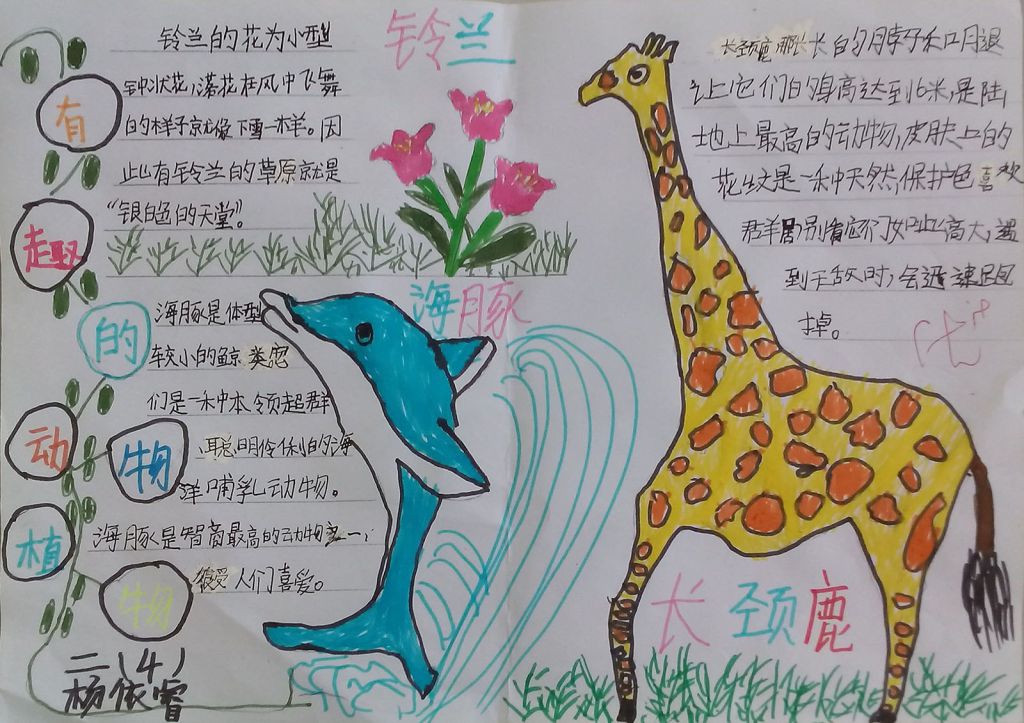 有趣的动物植物
铃兰
铃兰的花为小型
钟状花,落花在风中飞舞
的样子就像下雪一样。因
此有铃兰的草原就是
“银白色的天堂”。
海豚
海豚是体型
较小的鲸类
们是一种本领超群
聪明伶俐的海
洋哺乳动物。
海豚是智商最高的动物之一,
很受人们喜爱。
二(4)
杨依睿
长颈鹿
长颈鹿 长长的脖子和四月退
让它们的身高达到16米,是陆
地上最高的动物,皮肤上的
花纹是一种天然保护色喜欢
群居别看它们如此高大,遇
到天敌时,会迅速跑
掉。